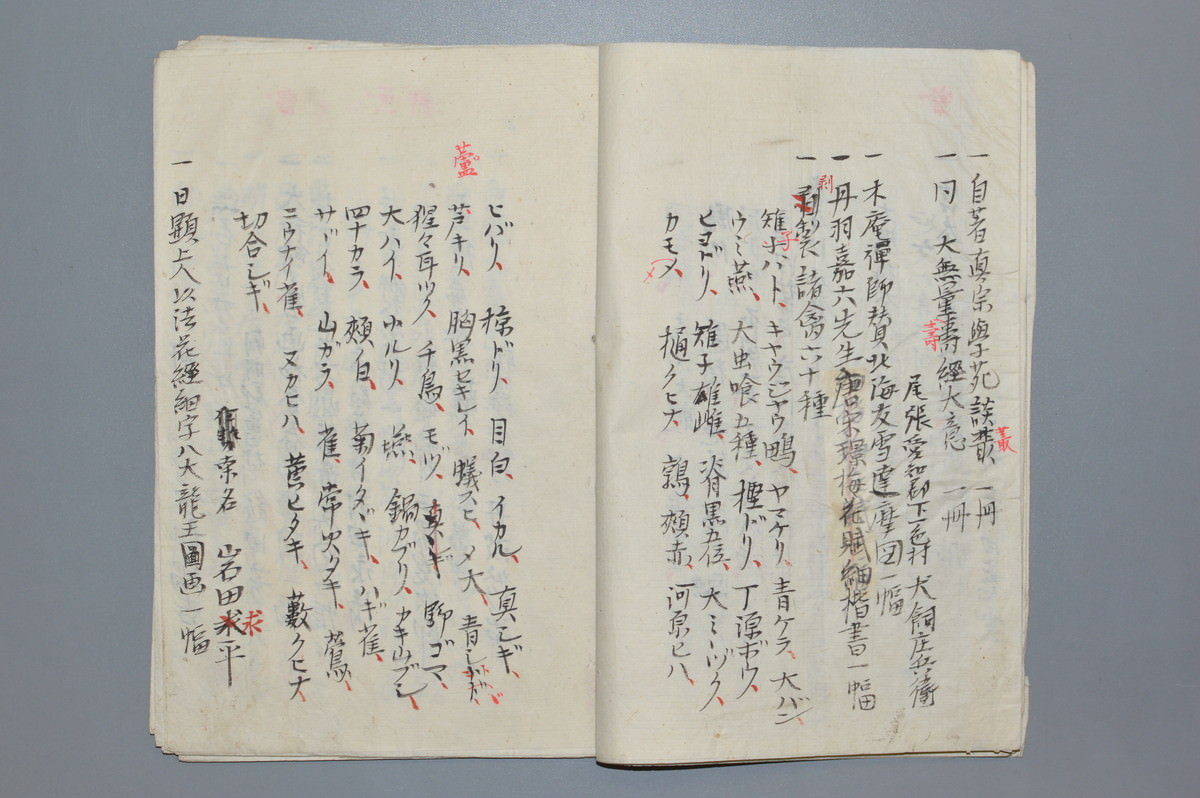 一自著真宗學苑談叢 一冊
叢
一同 大無量壽經大意 一冊
壽
尾張愛知郡下之一色村 犬飼庄兵衞
一木庵禪師賛北海友雪達摩図一幅
一丹羽嘉六先生唐宋璟梅花賦細楷書一幅
一剥製諸禽六十種
剥
雉子ハト、キヤウジヤウ鴫、ヤマケリ、青ケラ、大バン、
子
ウミ燕、大虫喰五種、樫ドリ、丁源ボウ、
ヒヨドリ、雉子雄雌、脊黒五位、大ミヽヅク、
カモメ、樋クヒナ、鶉、頰赤、河原ヒハ、
メ
ヒバリ、椋ドリ、目白、イカル、真シギ、
蘆
芦キリ、胸黒セキレイ、蟻スヒ、メ大、青シ
猩々耳ヅク、千鳥、モヅ、野ゴマ、
大ハイ、小ルリ、燕、鍋カブリ、カキ山ブシ、
四十カラ、頰白、菊イタヾキ、ハギ雀、
サバイ、山ガラ、雀、常火タキ、鶯、
ニウナイ雀、ヌカヒハ、黄ヒタキ、藪クヒナ、
切合シギ、
桑名 岩田求平
求
一日顕上人以法花經細字八大龍王圖画一幅